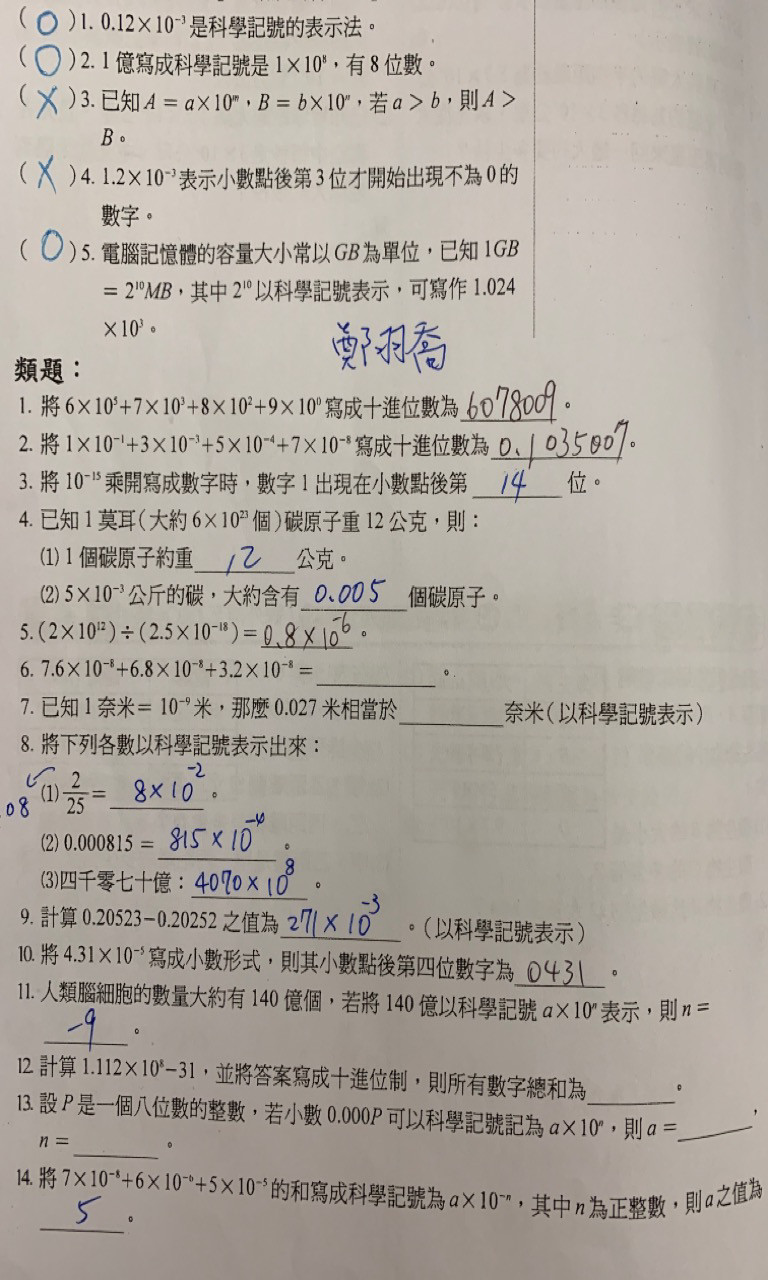 ( O )1. 0.12×10⁻³是科學記號的表示法。
( O )2. 1 億寫成科學記號是 1×10⁸，有 8 位數。
( X )3. 已知 A = a×10ᵐ，B = b×10ⁿ，若 a > b，則 A >
B。
( X )4. 1.2×10⁻³表示小數點後第 3 位才開始出現不為 0 的
數字。
( O )5. 電腦記憶體的容量大小常以 GB 為單位，已知 1GB
= 2¹⁰MB，其中 2¹⁰ 以科學記號表示，可寫作 1.024
×10³。
鄭羽喬
類題：
1. 將 6×10⁵+7×10³+8×10²+9×10⁰ 寫成十進位數為 6078009。
2. 將 1×10⁻¹+3×10⁻³+5×10⁻⁴+7×10⁻⁸ 寫成十進位數為 0.1035007。
3. 將 10⁻¹⁵ 乘開寫成數字時，數字 1 出現在小數點後第 14 位。
4. 已知 1 莫耳(大約 6×10²³ 個)碳原子重 12 公克，則：
(1) 1 個碳原子約重 12 公克。
(2) 5×10⁻³ 公斤的碳，大約含有 0.005 個碳原子。
5. (2×10¹²)÷(2.5×10⁻¹⁸)= 0.8×10⁻⁶。
6. 7.6×10⁻⁸+6.8×10⁻⁸+3.2×10⁻⁸ = ______。
7. 已知 1 奈米= 10⁻⁹ 米，那麼 0.027 米相當於______奈米(以科學記號表示)
8. 將下列各數以科學記號表示出來：
(1) 2/25 = 8×10⁻²。
.08
(2) 0.000815 = 815×10⁻⁴。
(3)四千零七十億：4070×10⁸。
9. 計算 0.20523−0.20252 之值為 271×10⁻³。(以科學記號表示)
10. 將 4.31×10⁻⁵ 寫成小數形式，則其小數點後第四位數字為 0431。
11. 人類腦細胞的數量大約有 140 億個，若將 140 億以科學記號 a×10ⁿ 表示，則 n =
-9。
12. 計算 1.112×10⁸−31，並將答案寫成十進位制，則所有數字總和為______。
13. 設 P 是一個八位數的整數，若小數 0.000P 可以科學記號記為 a×10ⁿ，則 a =______，
n = ______。
14. 將 7×10⁻⁸+6×10⁻⁶+5×10⁻⁵ 的和寫成科學記號為 a×10⁻ⁿ，其中 n 為正整數，則 a 之值為
5。